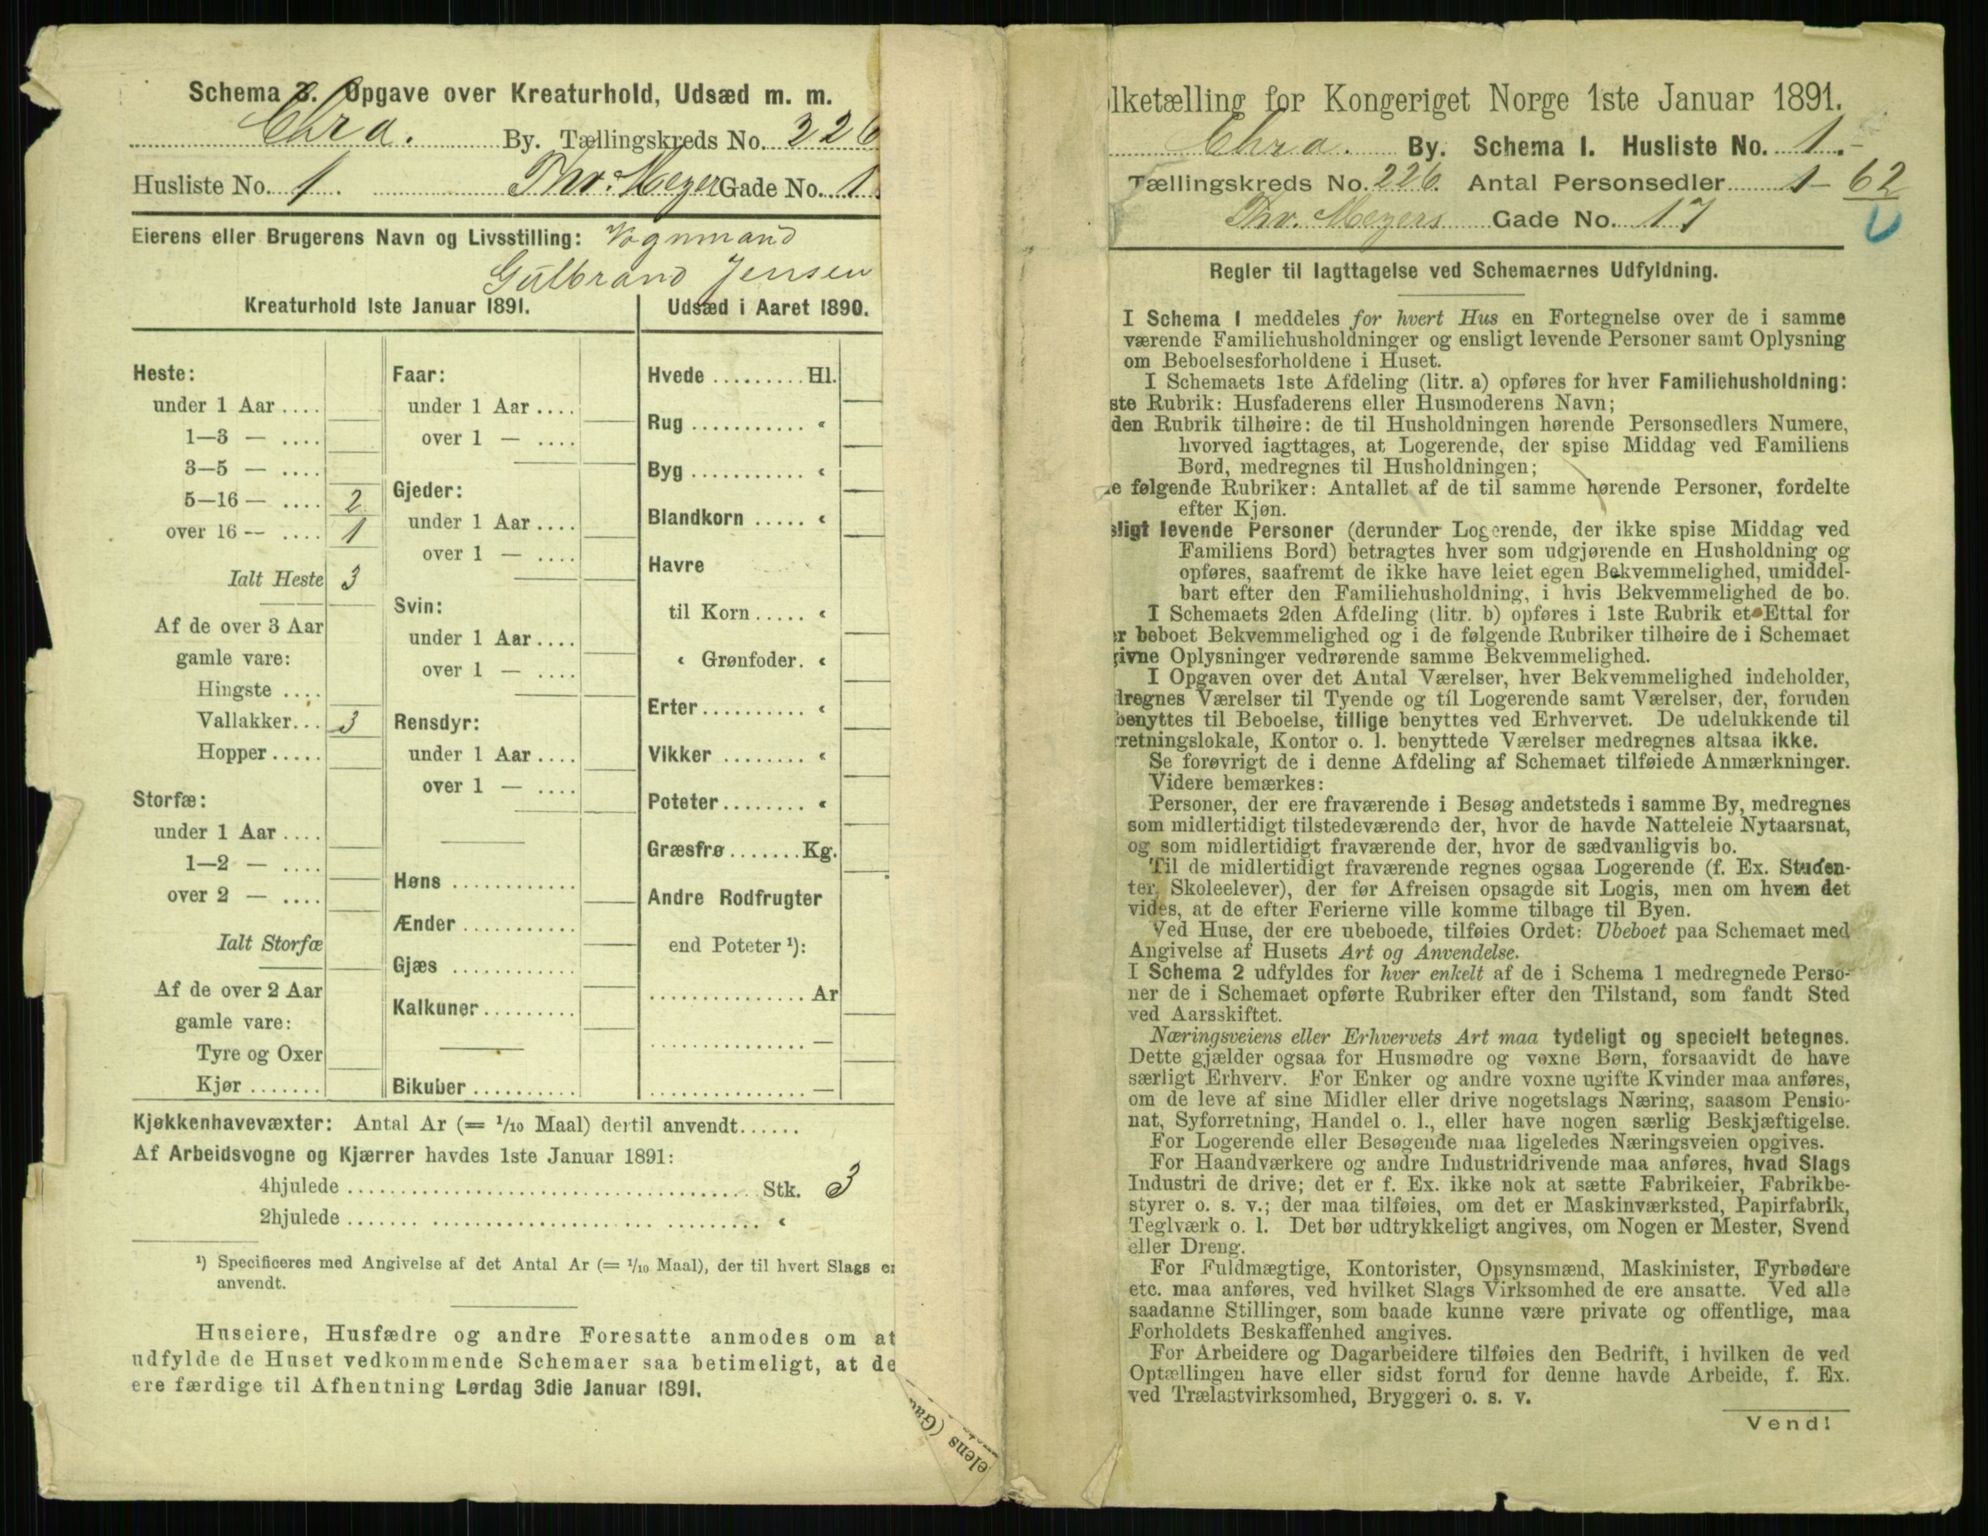 Schema 3. Opgave over Kreaturhold, Udsæd m. m.
Chra. By. Tællingskreds No. 226
Husliste No. 1. Thv. Meyer Gade No. 1
Eierens eller Brugerens Navn og Livsstilling: Vognmand
Gulbrand Jensen
Kreaturhold 1ste Januar 1891.
Heste:
under 1 Aar ....
1—3 — ....
3—5 — ....
5—16 — .... 2
over 16 — .... 1
Ialt Heste 3
Af de over 3 Aar
gamle vare:
Hingste ....
Vallakker... 3
Hopper .....
Storfæ:
under 1 Aar ....
1—2 — ....
over 2 — ....
Ialt Storfæ
Af de over 2 Aar
gamle vare:
Tyre og Oxer
Kjør .......
Faar:
under 1 Aar ....
over 1 — ....
Gjeder:
under 1 Aar ....
over 1 — ....
Svin:
under 1 Aar ....
over 1 — ....
Rensdyr:
under 1 Aar ....
over 1 — ....
Høns ............
Ænder ...........
Gjæs ............
Kalkuner .........
Bikuber ..........
Udsæd i Aaret 1890.
Hvede ......... Hl.
Rug ........... «
Byg ........... «
Blandkorn ..... «
Havre
til Korn ..... «
« Grønfoder. «
Erter .......... «
Vikker ........ «
Poteter ........ «
Græsfrø ....... Kg.
Andre Rodfrugter
end Poteter ¹):
............... Ar
............... —
............... —
Kjøkkenhavevæxter: Antal Ar (= 1/10 Maal) dertil anvendt......
Af Arbeidsvogne og Kjærrer havdes 1ste Januar 1891:
4hjulede .................................... Stk. 3
2hjulede .................................... «
¹) Specificeres med Angivelse af det Antal Ar (= 1/10 Maal), der til hvert Slags er
anvendt.
Huseiere, Husfædre og andre Foresatte anmodes om at
udfylde de Huset vedkommende Schemaer saa betimeligt, at de
ere færdige til Afhentning Lørdag 3die Januar 1891.
elens (Ga
lketælling for Kongeriget Norge 1ste Januar 1891.
Chra. By. Schema I. Husliste No. 1.
Tællingskreds No. 226. Antal Personsedler 1 - 62
Thv. Meyers Gade No. 17
Regler til Iagttagelse ved Schemaernes Udfyldning.
I Schema 1 meddeles for hvert Hus en Fortegnelse over de i samme
værende Familiehusholdninger og ensligt levende Personer samt Oplysning
om Beboelsesforholdene i Huset.
I Schemaets 1ste Afdeling (litr. a) opføres for hver Familiehusholdning:
ste Rubrik: Husfaderens eller Husmoderens Navn;
den Rubrik tilhøire: de til Husholdningen hørende Personsedlers Numere,
hvorved iagttages, at Logerende, der spise Middag ved Familiens
Bord, medregnes til Husholdningen;
e følgende Rubriker: Antallet af de til samme hørende Personer, fordelte
efter Kjøn.
sligt levende Personer (derunder Logerende, der ikke spise Middag ved
Familiens Bord) betragtes hver som udgjørende en Husholdning og
opføres, saafremt de ikke have leiet egen Bekvemmelighed, umiddel-
bart efter den Familiehusholdning, i hvis Bekvemmelighed de bo.
I Schemaets 2den Afdeling (litr. b) opføres i 1ste Rubrik et Ettal for
r beboet Bekvemmelighed og i de følgende Rubriker tilhøire de i Schemaet
givne Oplysninger vedrørende samme Bekvemmelighed.
I Opgaven over det Antal Værelser, hver Bekvemmelighed indeholder,
dregnes Værelser til Tyende og til Logerende samt Værelser, der, foruden
benyttes til Beboelse, tillige benyttes ved Erhvervet. De udelukkende til
rretningslokale, Kontor o. l. benyttede Værelser medregnes altsaa ikke.
Se forøvrigt de i denne Afdeling af Schemaet tilføiede Anmærkninger.
Videre bemærkes:
Personer, der ere fraværende i Besøg andetsteds i samme By, medregnes
som midlertidigt tilstedeværende der, hvor de havde Natteleie Nytaarsnat,
og som midlertidigt fraværende der, hvor de sædvanligvis bo.
Til de midlertidigt fraværende regnes ogsaa Logerende (f. Ex. Studen-
ter, Skoleelever), der før Afreisen opsagde sit Logis, men om hvem det
vides, at de efter Ferierne ville komme tilbage til Byen.
Ved Huse, der ere ubeboede, tilføies Ordet: Ubeboet paa Schemaet med
Angivelse af Husets Art og Anvendelse.
I Schema 2 udfyldes for hver enkelt af de i Schema 1 medregnede Perso-
ner de i Schemaet opførte Rubriker efter den Tilstand, som fandt Sted
ved Aarsskiftet.
Næringsveiens eller Erhvervets Art maa tydeligt og specielt betegnes.
Dette gjælder ogsaa for Husmødre og voxne Børn, forsaavidt de have
særligt Erhverv. For Enker og andre voxne ugifte Kvinder maa anføres,
om de leve af sine Midler eller drive nogetslags Næring, saasom Pensio-
nat, Syforretning, Handel o. l., eller have nogen særlig Beskjæftigelse.
For Logerende eller Besøgende maa ligeledes Næringsveien opgives.
For Haandværkere og andre Industridrivende maa anføres, hvad Slags
Industri de drive; det er f. Ex. ikke nok at sætte Fabrikeier, Fabrikbe-
styrer o. s. v.; der maa tilføies, om det er Maskinværksted, Papirfabrik,
Teglværk o. l. Det bør udtrykkeligt angives, om Nogen er Mester, Svend
eller Dreng.
For Fuldmægtige, Kontorister, Opsynsmænd, Maskinister, Fyrbødere
etc. maa anføres, ved hvilket Slags Virksomhed de ere ansatte. Ved alle
saadanne Stillinger, som baade kunne være private og offentlige, maa
Forholdets Beskaffenhed angives.
For Arbeidere og Dagarbeidere tilføies den Bedrift, i hvilken de ved
Optællingen have eller sidst forud for denne havde Arbeide, f. Ex.
ved Trælastvirksomhed, Bryggeri o. s. v.
Vend!